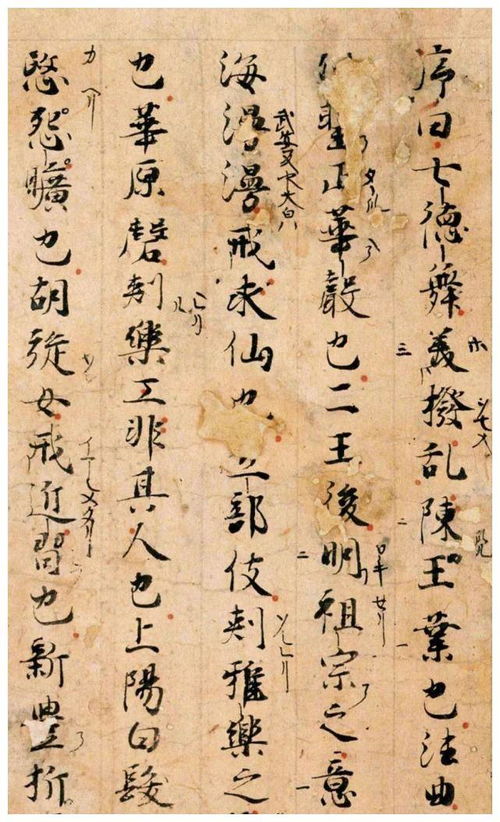 序曰七德舞義撥乱陳王業也法曲
聖正華聲也二王後明祖宗之意
海漫漫戒求仙也立部伎刺雅樂之
也華原磬刺樂工非其人也上陽白髮
愍怨曠也胡旋女戒近習也新豊折